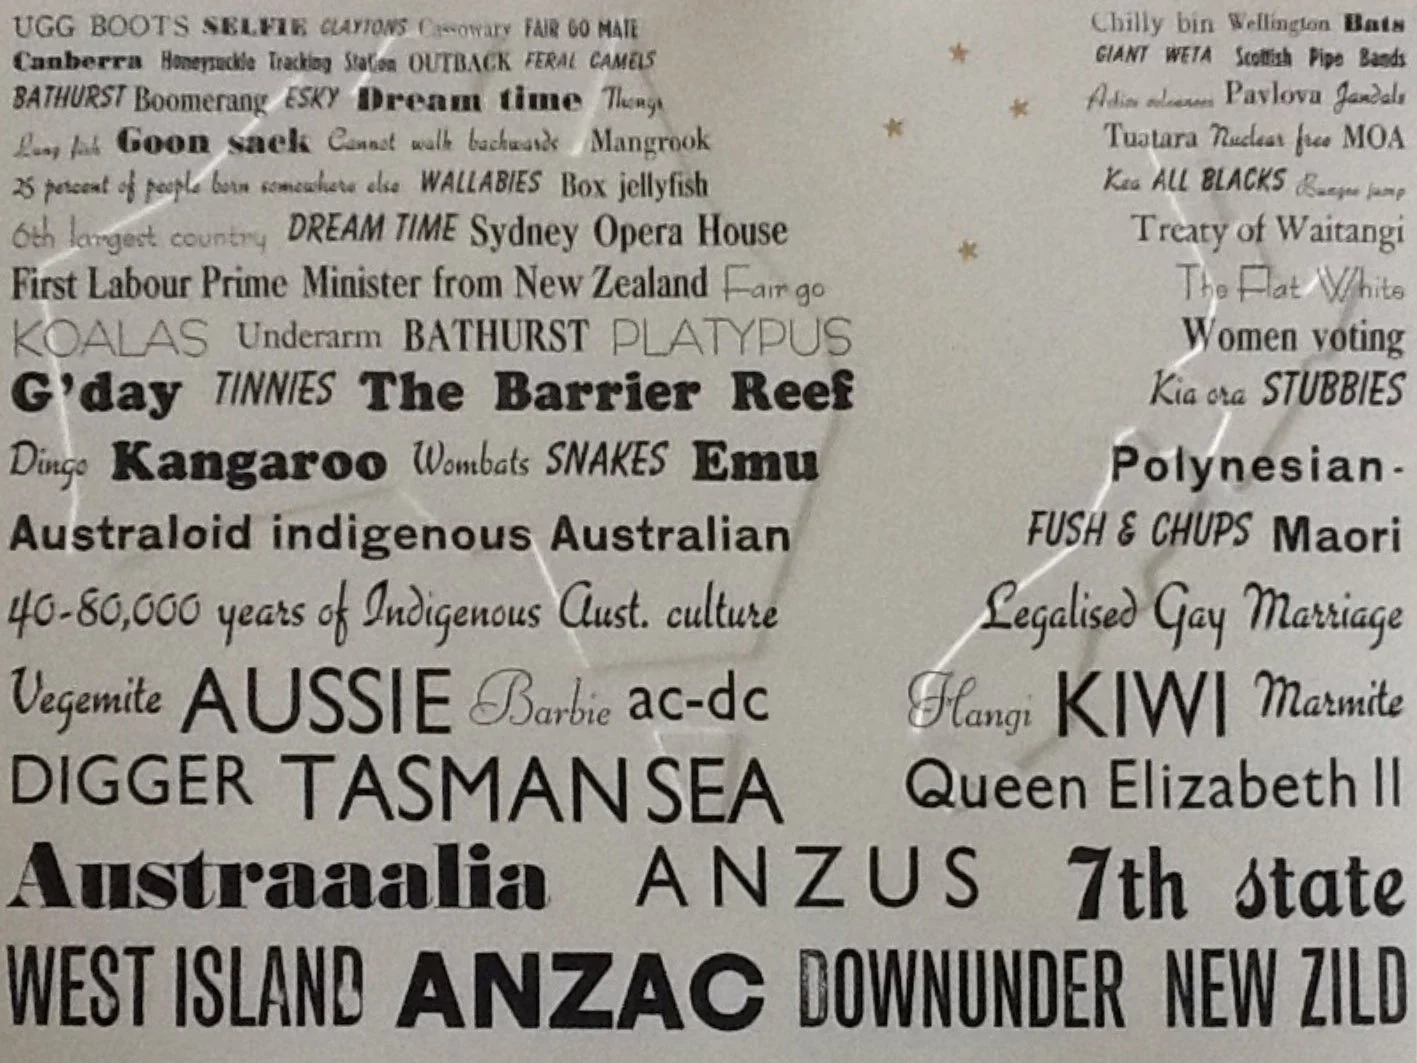 UGG BOOTS SELFIE CLAYTONS Cassowary FAIR GO MATE
Chilly bin Wellington Bats
Canberra Honeysuckle Tracking Station OUTBACK FERAL CAMELS
GIANT WETA Scottish Pipe Bands
BATHURST Boomerang ESKY Dream time Thongs
Active volcanoes Pavlova Jandals
Lung fish Goon sack Cannot walk backwards Mangrook
Tuatara Nuclear free MOA
25 percent of people born somewhere else WALLABIES Box jellyfish
Kea ALL BLACKS Bungee jump
6th largest country DREAM TIME Sydney Opera House
Treaty of Waitangi
First Labour Prime Minister from New Zealand Fair go
The Flat White
KOALAS Underarm BATHURST PLATYPUS
Women voting
G'day TINNIES The Barrier Reef
Kia ora STUBBIES
Dingo Kangaroo Wombats SNAKES Emu
Polynesian-
Australoid indigenous Australian
FUSH & CHUPS Maori
40-80,000 years of Indigenous Aust. culture
Legalised Gay Marriage
Vegemite AUSSIE Barbie ac-dc
Hangi KIWI Marmite
DIGGER TASMAN SEA
Queen Elizabeth II
Austraaalia ANZUS 7th state
WEST ISLAND ANZAC DOWNUNDER NEW ZILD